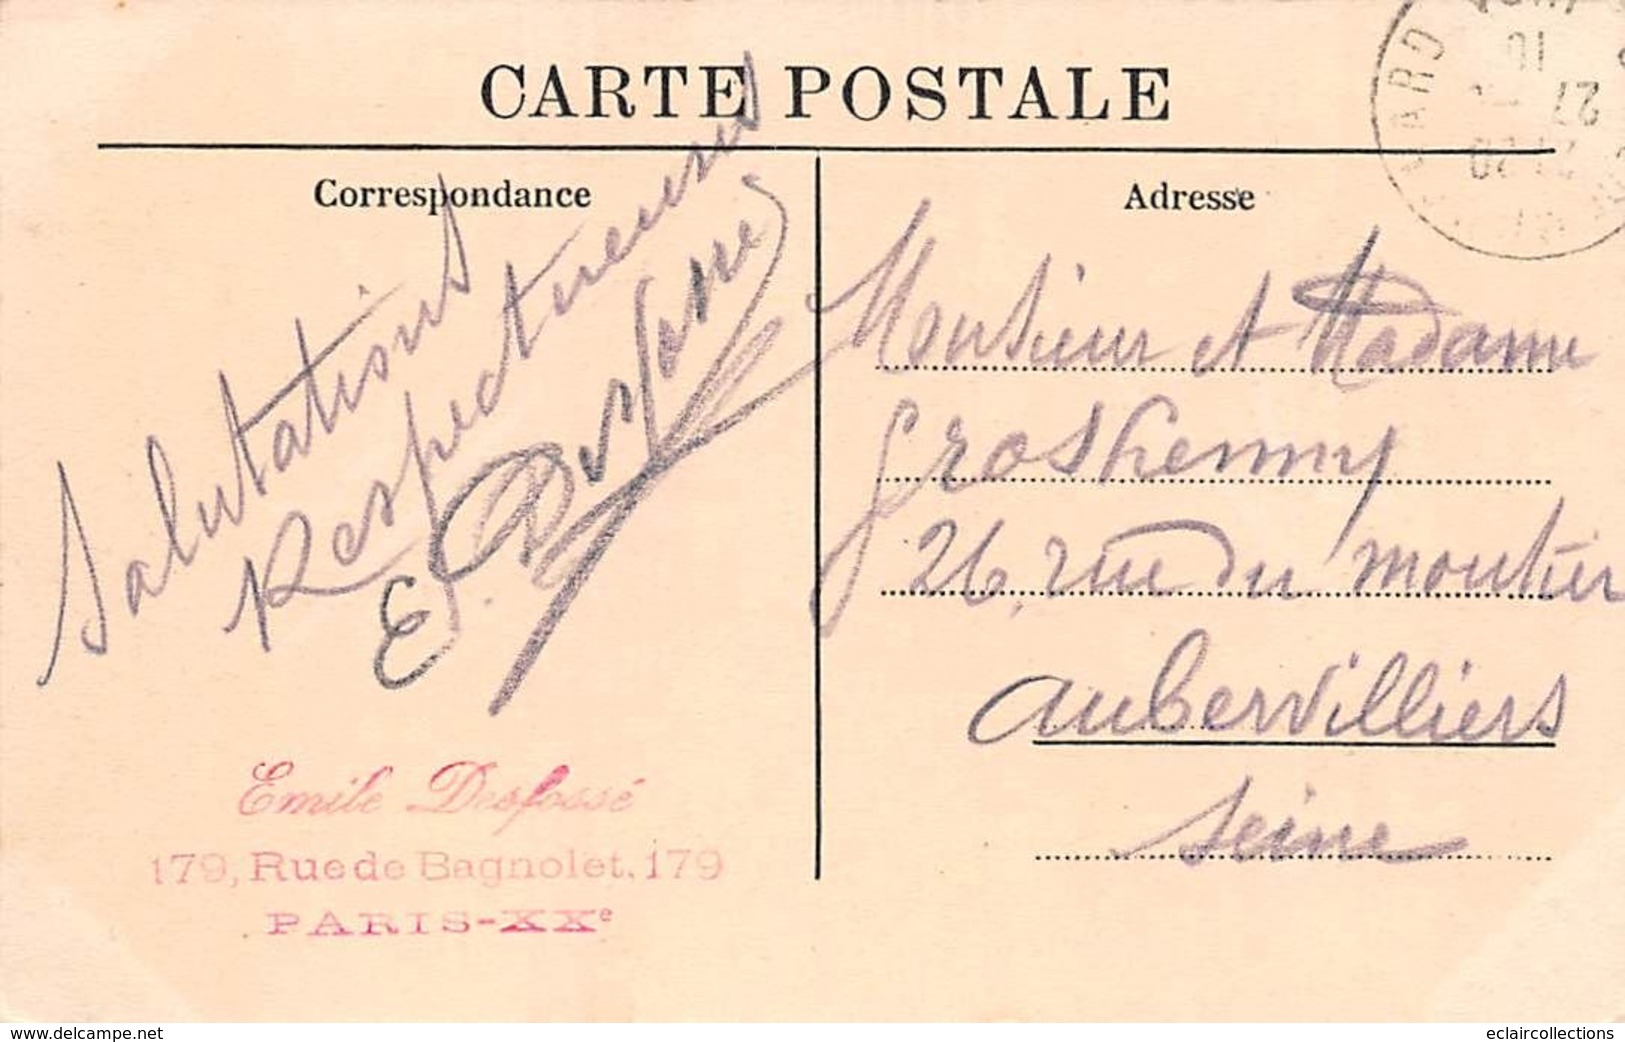 CARTE POSTALE
Correspondance
Salutations
Respectueuses
E. Desfossé
Emile Desfossé
179, Rue de Bagnolet. 179
PARIS-XXe
Adresse
Monsieur et Madame
Groshenny
26, rue du moutier
aubervilliers
Seine
27
www.delcampe.net
eclaircollections